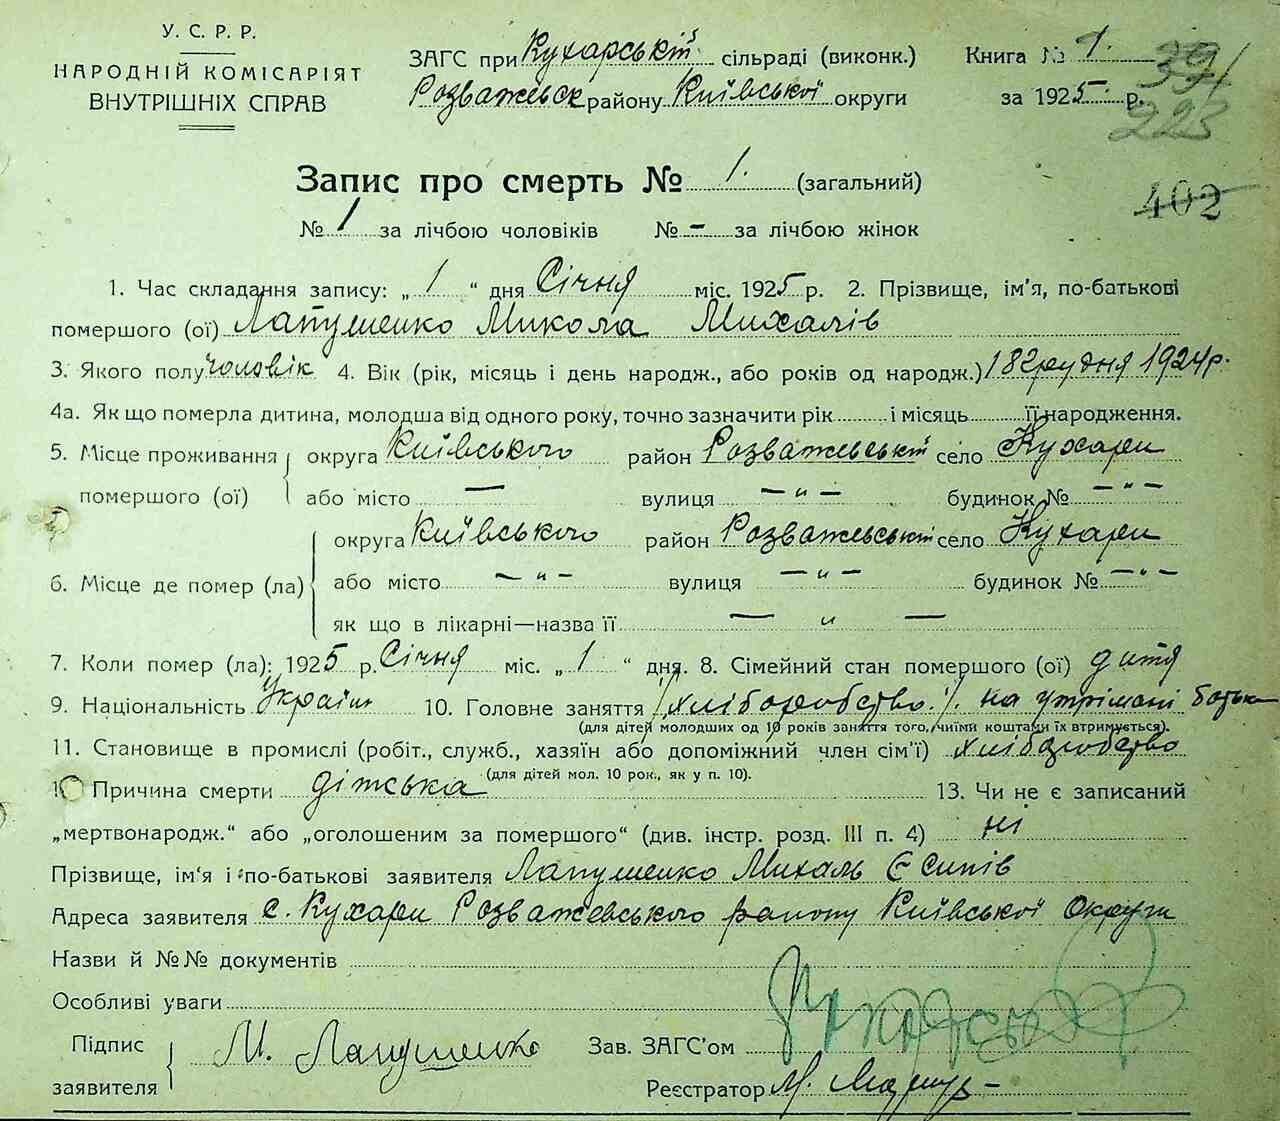 У. С. Р. Р.
НАРОДНІЙ КОМІСАРІЯТ
ВНУТРІШНІХ СПРАВ
ЗАГС при Кухарській сільраді (виконк.)
Розважевск району Київської округи
Книга № 1.
за 1925 р.
39
223
402
Запис про смерть № 1. (загальний)
№ 1 за лічбою чоловіків № – за лічбою жінок
1. Час складання запису: „ 1 “ дня Січня міс. 1925 р. 2. Прізвище, ім'я, по-батькові
помершого (ої) Лапушенко Микола Михалів
3. Якого полу чоловік 4. Вік (рік, місяць і день народж., або років од народж.) 18 грудня 1924 р.
4а. Як що померла дитина, молодша від одного року, точно зазначити рік і місяць її народження.
5. Місце проживання округа Київського район Розважевськ село Кухари
помершого (ої) або місто — вулиця — „ — будинок № — „ —
округа Київського район Розважевськ село Кухари
6. Місце де помер (ла) або місто — „ — вулиця — „ — будинок № — „ —
як що в лікарні—назва її — „ —
7. Коли помер (ла): 1925 р. Січня міс. „ 1 “ дня. 8. Сімейний стан помершого (ої) дитя
9. Національність Україн 10. Головне заняття /хліборобство:/. на утрімані батька
(для дітей молодших од 10 років заняття того, чиїми коштами їх втримується).
11. Становище в промислі (робіт., служб., хазяїн або допоміжний член сім'ї) хліборобство
(для дітей мол. 10 рок., як у п. 10).
1 Причина смерти дітська 13. Чи не є записаний
„мертвонародж.“ або „оголошеним за помершого“ (див. інстр. розд. III п. 4) ні
Прізвище, ім'я і по-батькові заявителя Лапушенко Михаль Єсипів
Адреса заявителя с. Кухари Розважевського району Київської Округи
Назви й №№ документів
Особливі уваги
Підпис
заявителя М. Лапушенко
Зав. ЗАГС'ом
Реєстратор М.